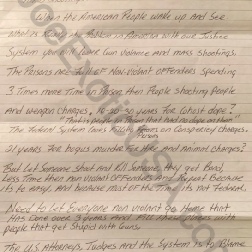 When the American People wake up and see
what is Really the Problem in America with our Justice
System you will lower Gun Violence and mass shootings.
The Prisons are full of Non-violent offenders spending
3 times more Time in Prison then People shooting People
And weapon charges. 10-30+ years for Ghost dope?
"That is people for Drugs that had no dope on them"
The Federal System loves Conspiracy charges.
21 years for bogus murder for Hire and Animal charges?
But Let someone shoot and Kill someone, they get Bond,
Less Time then Non violent offenders and Repeat Because
its to easy. And because most of the Time its not Federal.
Need to Let Everyone non violent Go Home that
Has Done over 3 years And Fill these with
people that get Stupid with Guns.
The U.S Attorneys, Judges and the System is to Blame